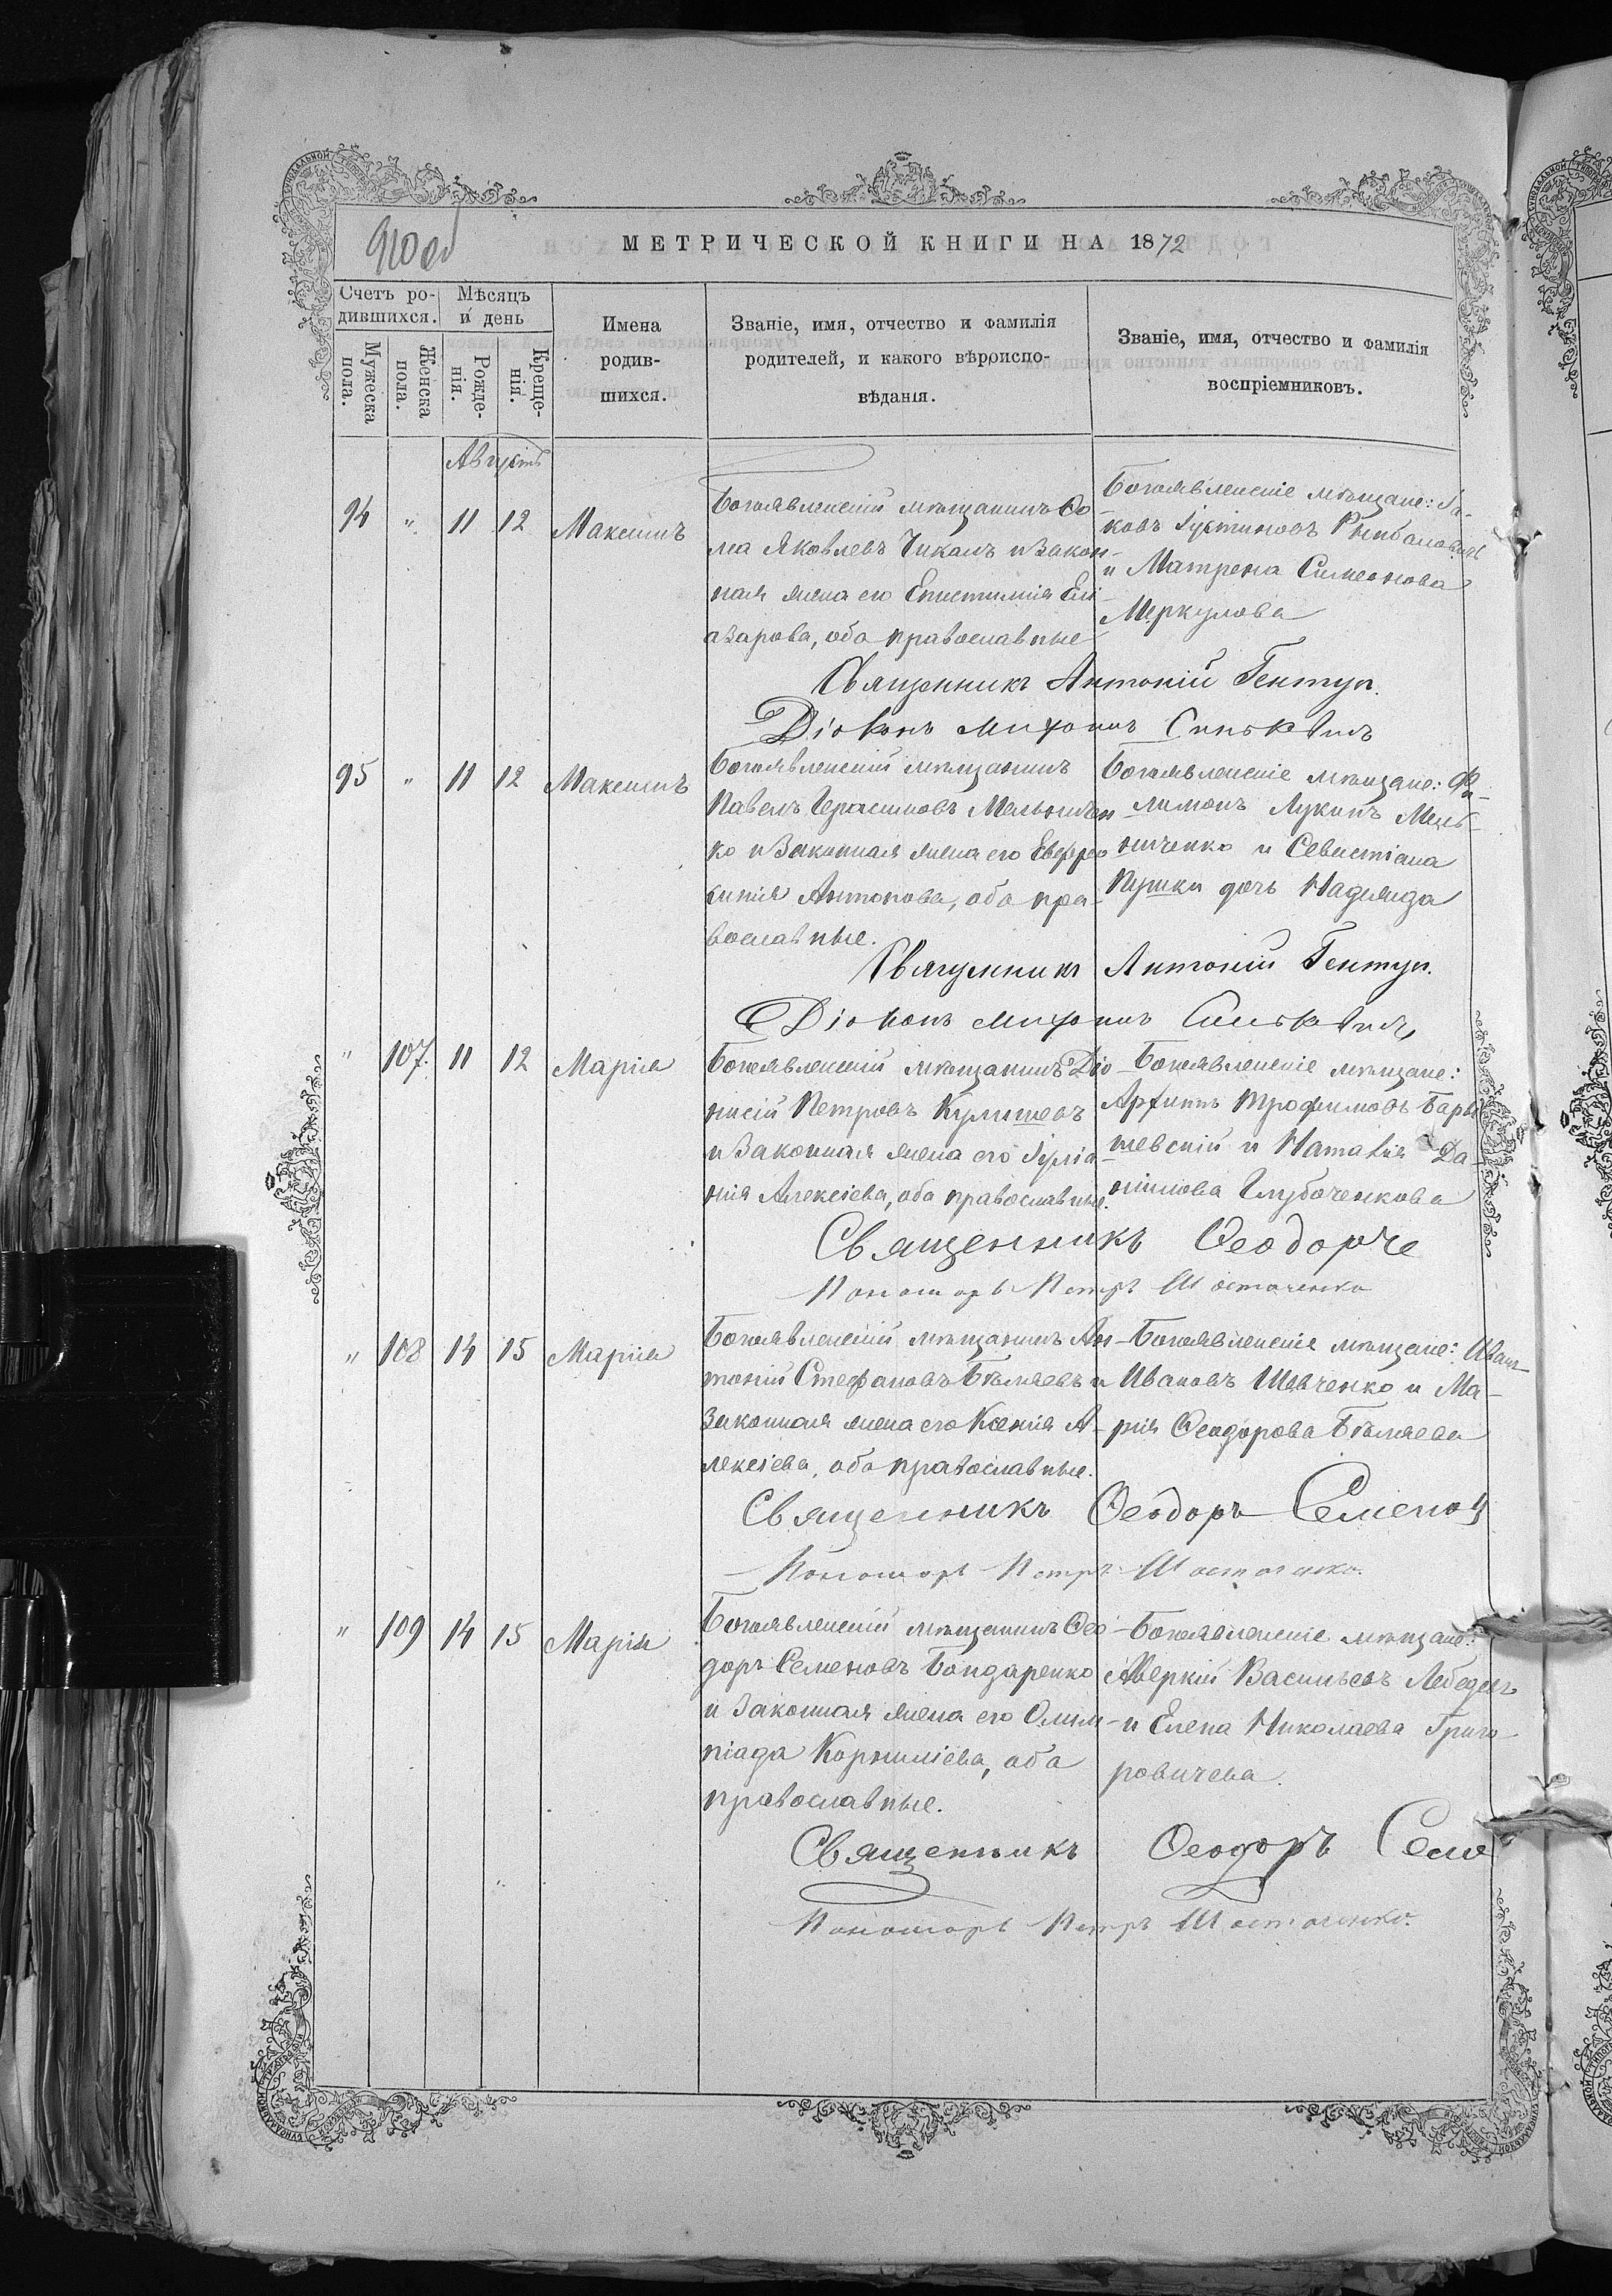 910 об
МЕТРИЧЕСКОЙ КНИГИ НА 1872
Счетъ ро-
дившихся.
Мѣсяцъ
и день
Мужеска
пола.
Женска
пола.
Рожде-
нія.
Креще-
нія.
Имена
родив-
шихся.
Званіе, имя, отчество и фамилія
родителей, и какого вѣроиспо-
вѣданія.
Званіе, имя, отчество и фамилія
воспріемниковъ.
Августъ
94 " 11 12 Максимъ
Богоявленскій мѣщанинъ Ѳо
ма Яковлевъ Чикалъ и закон-
ная жена его Епистимія Ели
азарова, оба православные
Богоявленскіе мѣщане: Іа-
ковъ Іустиновъ Рыбаловъ
и Матрена Симеонова
Меркулова
Священникъ Антоній Гентуп.
Діаконъ
95 " 11 12 Максимъ
Богоявленскій мѣщанинъ
Павелъ Герасимовъ Мельничен
ко и законная жена его Евфро
синія Антонова, оба пра-
вославные.
Богоявленскіе мѣщане: Фи-
лимонъ Лукинъ Мель-
ниченко и Севастіана
Пушки дочь Надежда
Священникъ Антоній Гентуп.
Діаконъ
" 107. 11 12 Марія
Богоявленскій мѣщанинъ Діо
нисій Петровъ Кулишевъ
и законная жена его Іуліа-
нія Алексіева, оба православные.
Богоявленскіе мѣщане:
Архипъ Трофимовъ Бары
шевскій и Наталія Да-
ніилова Глубоченкова
Священникъ Ѳеодоръ Се
Пономарь Петръ Шостаченко
" 108 14 15 Марія
Богоявленскій мѣщанинъ Ан-
тоній Стефановъ Бѣляевъ и
законная жена его Ксенія А-
лексіева, оба православные.
Богоявленскіе мѣщане: Иванъ
Ивановъ Шевченко и Ма-
рія Ѳеодорова Бѣляева
Священникъ Ѳеодоръ Семенов
Пономарь Петръ Шостаченко.
" 109 14 15 Марія
Богоявленскій мѣщанинъ Ѳео
доръ Семеновъ Бондаренко
и законная жена его Олим-
піада Корниліева, оба
православные.
Богоявленскіе мѣщане:
Аверкій Васильевъ Лебедевъ
и Елена Николаева Григо-
ровичева.
Священникъ Ѳеодоръ Семе
Пономарь Петръ Шостаченко.